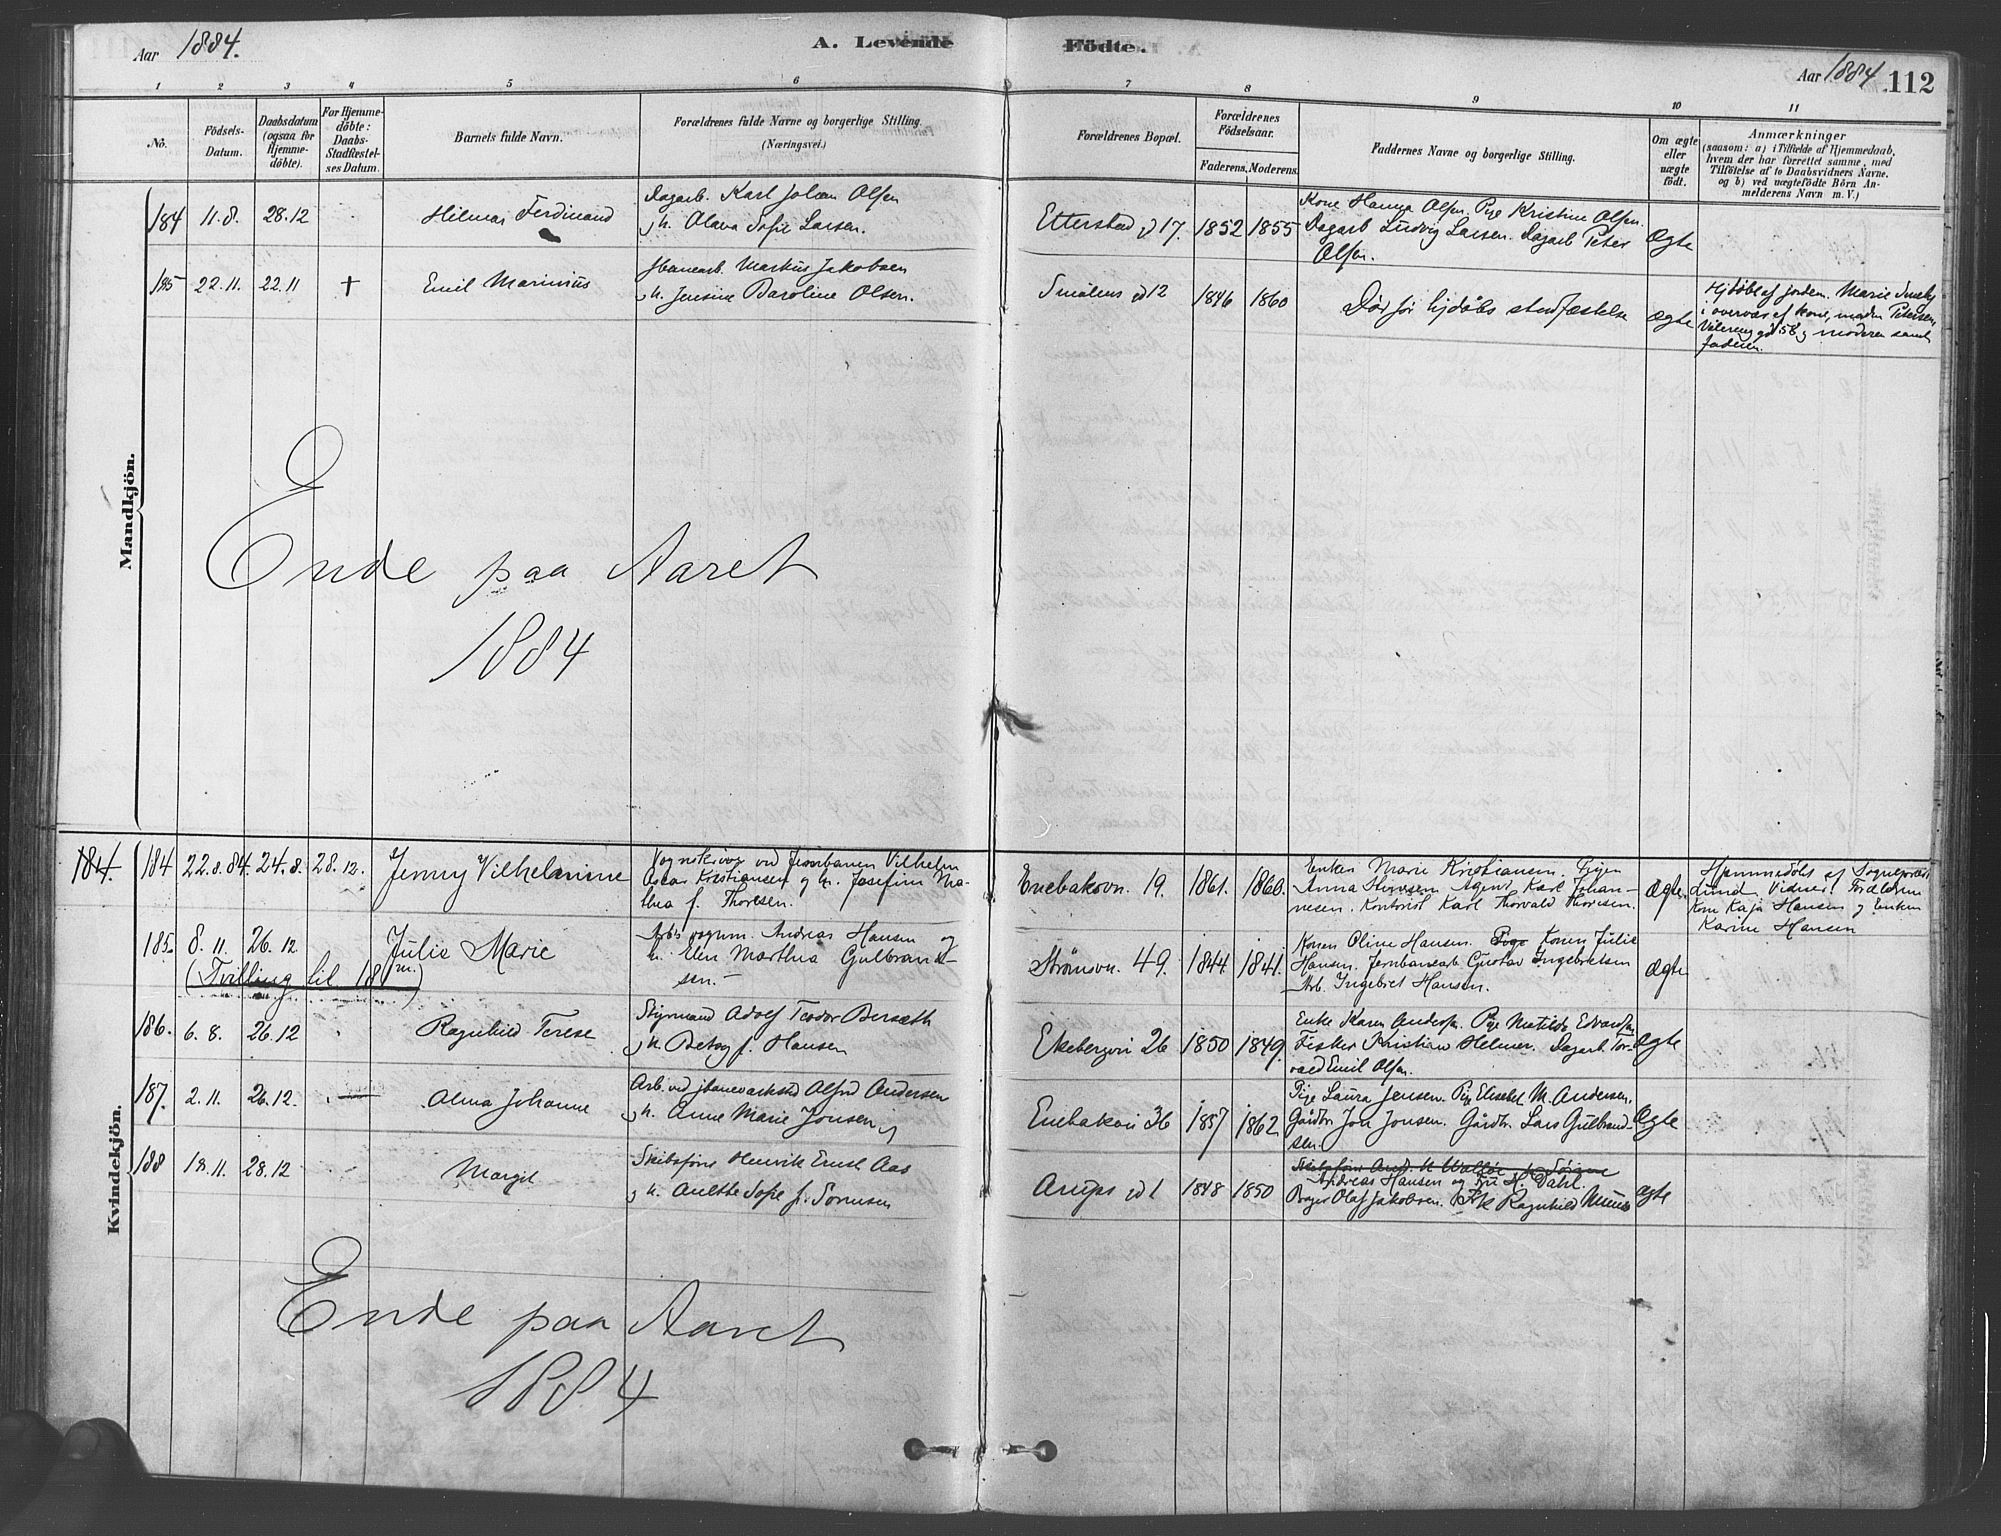 Aar 1884.
A. Levende Födte.
Aar 1884 112
1 2 3 4 5 6 7 8 9 10 11
No.
Födsels-
Datum.
Daabsdatum
(ogsaa for
Hjemme-
döbte).
For Hjemme-
döbte:
Daabs-
Stadfæstel-
ses Datum.
Barnets fulde Navn.
Forældrenes fulde Navne og borgerlige Stilling.
(Næringsvei.)
Forældrenes Bopæl.
Forældrenes
Födselsaar.
Faderens. Moderens.
Faddernes Navne og borgerlige Stilling.
Om ægte
eller
uægte
födt.
Anmærkninger
(saasom: a) i Tilfælde af Hjemmedaab,
hvem der har forrettet samme, med
Tilföielse af to Daabsvidners Navne.
og b) ved uægtefödte Börn An-
melderens Navn m. V.)
Mandkjön.
184 11.8. 28.12 Hilmar Ferdinand
Dagarb. Karl Johan Olsen
og h. Olava Sofie Larsen.
Etterstad gd 17. 1852 1855
Kone Hanna Olsen. Pige Kristine Olsen.
Dagarb Ludvig Larsen. Dagarb Peter
Olsen.
Ægte
185 22.11. 22.11 + Emil Marinius
Jbanearb. Markus Jakobsen
og h. Jensine Baroline Olsen.
Smålens gd 12 1846 1860
Död för hjdöbs stadfæstelse
Ægte
Hjdöbt af jordem. Marie
i overvær af kone, madm Petersen
Vålereng gd 58, moderen samt
faderen.
Ende paa Aaret
1884
Kvindekjön.
184. 184 22.8.84. 24.8. 28.12. Jenny Vilhelmine
Vognskriver ved Jernbanen Vilhelm
Oscar Kristiansen og h. Josefine Ma-
thea f. Thoresen.
Enebakovn. 19. 1861. 1860.
Enken Marie Kristiansen. Pigen
Anna Agent Karl Johan-
nesen. Kontorist Karl Thorvald Thoresen.
Ægte
Hjemmedöbt af Sognepræst
Lund. Vidner: Forældrene
Kone Kaja Hansen og Enken
Karine Hansen
185. 8.11. 26.12 Julie Marie
(Tvilling til 18 m.)
Arb. Andreas Hansen og
h. Elen Marthea Gulbrand-
sen.
Strömsvn. 49. 1844 1841.
Konen Oline Hansen. Konen Julie
Hansen. Jernbanearb Gustav Ingebretsen
Arb. Ingebret Hansen.
Ægte
186. 6.8. 26.12 Ragnhild Terese
Styrmand Adolf Teodor Berseth
og h. Betsy f. Hansen
Ekebergvei 26 1850 1849.
Enke Karen Andersen. Pige Matilde Edvardsen
Fisker Kristian Helmer. Dagarb. Tor-
vald Emil Olsen.
Ægte
187. 2.11. 26.12. Alma Johanne
Arb. ved jbaneværksted Alfred Andersen
og h. Anne Marie Jonsen
Enebakvei 36 1857 1862
Pige Laura Jensen. Pige Elisabet M. Andersen.
Gårdbr Jon Jonsen. Gårdbr. Lars Gulbrand-
sen
Ægte
188 18.11. 28.12 Margit
Skibsförer Henrik Ernst Aas
og h. Anethe Sofie f. Sörensen
Arups gd 1 1848 1850
Skibsförer And. H
Andreas Hansen og fru H. Dahl.
Borger Olaf Jakobsen. Frk Ragnhild
Ægte
Ende paa Aaret
1884